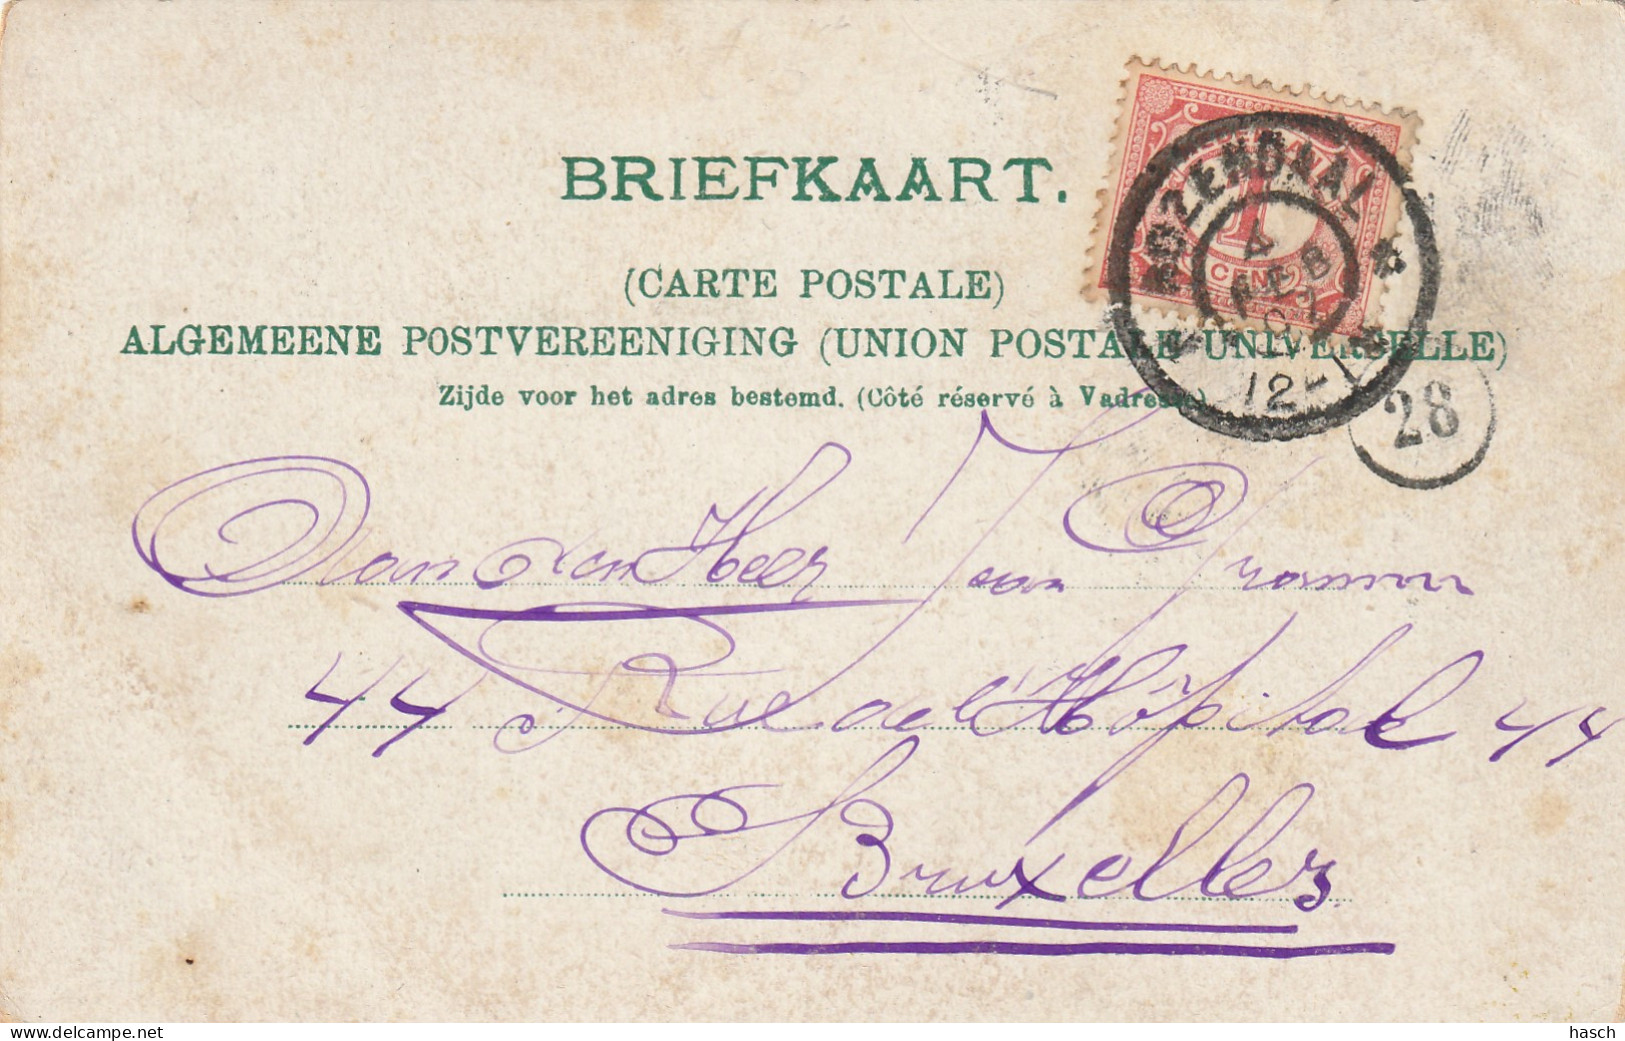 BRIEFKAART.
(CARTE POSTALE)
ALGEMEENE POSTVEREENIGING (UNION POSTALE UNIVERSELLE)
Zijde voor het adres bestemd. (Côté réservé à Vadresse)
ROZENDAAL
4 FEB
12-1
1
CENT
28
Aan den Heer Jean Vroman
44 Rue de l'Hôpital 44
Bruxelles
www.delcampe.net
hasch